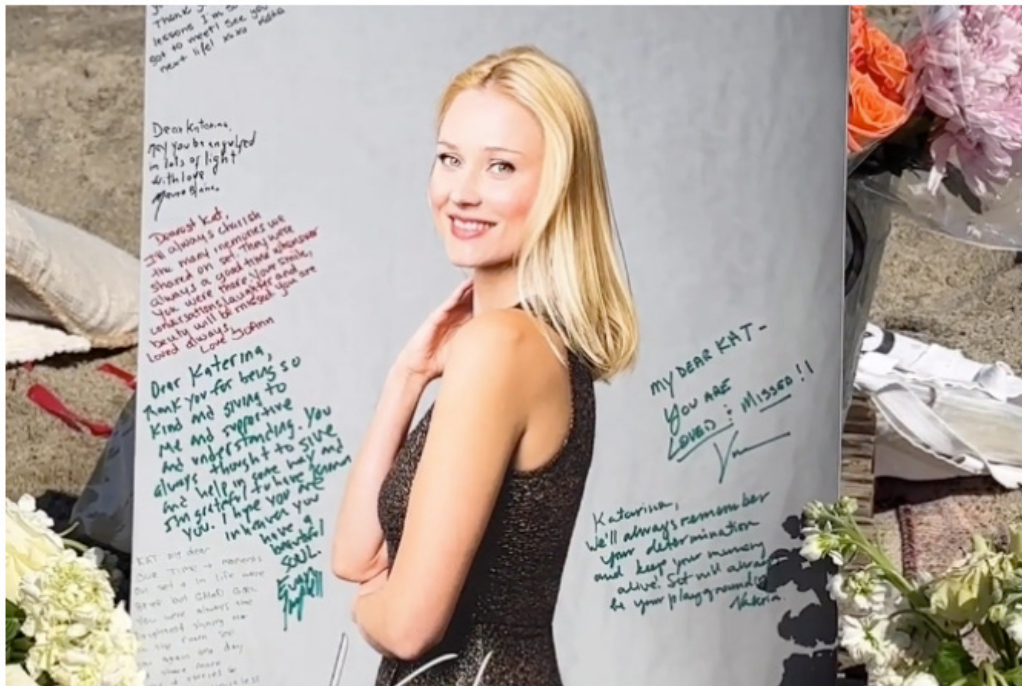 Thank y
lessons. I'm so
got to meet! See you
next life! xoxo
Dear Katarina,
may you be engulfed
in lots of light
with love
Dearest Kat,
I'll always cherish
the many memories we
shared on set. They were
always a good time whenever
you were there. Your smile,
conversations, laughter and
beauty will be missed. You are
loved always,
Love JoAnn
Dear Katerina,
Thank you for being so
kind and giving to
me and supportive
and understanding. You
always thought to give
and help in some way and
I'm grateful to have known
you. I hope you are
in heaven you
have a
beautiful
SOUL.
KAT my dear
OUR TIME + memories
on set + in life were
brief but GLAD
You were always the
brightest shining
in the room
again one day
share more
MY DEAR KAT-
YOU ARE
LOVED & MISSED!!
Katarina,
We'll always remember
your determination
and keep your memory
alive. Set will always
be your playground.
Valeria.